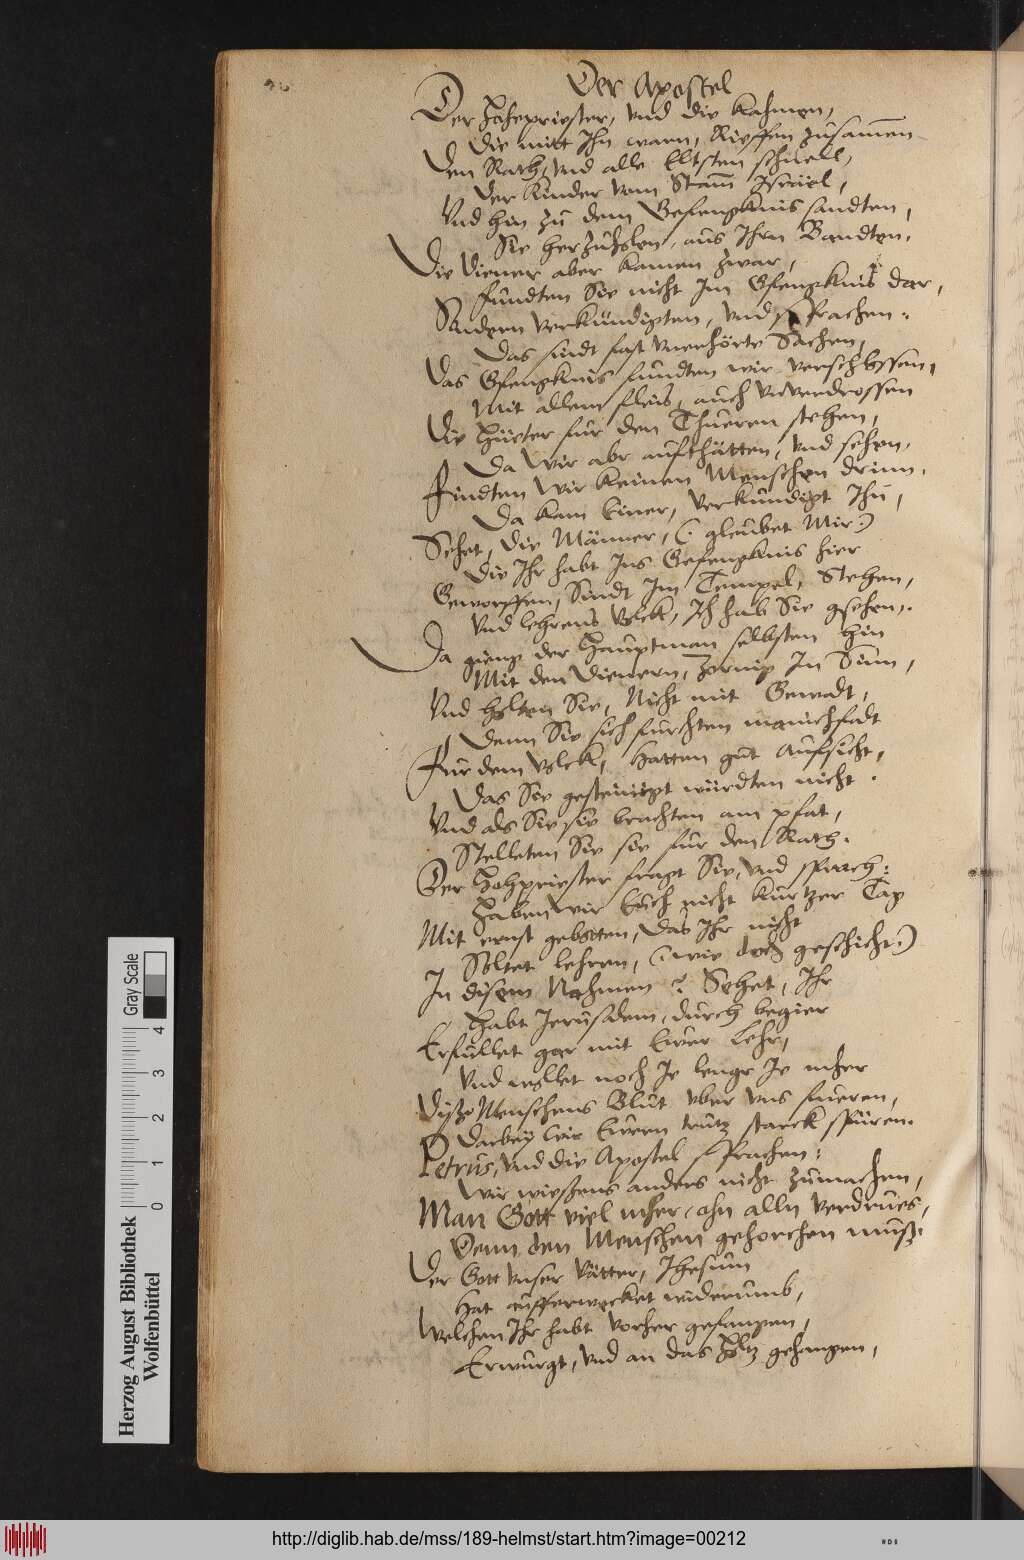 Der Apostel
Der Hohepriester, Vnd die kahmen,
Die mitt Ihn warn, Rieffen zusamen
Den Rath, Vnd alle Eltsten schnell,
Der Kinder vom Stam Israel,
Vnd hin zu dem Gefengknis sandten,
Sie herzuholen, aus Ihrn Bandten.
Die Diener aber kamen zwar,
fundten Sie nicht Im Gfengknis dar,
Sundern verkündigten, vnd sprachen:
Das sindt fast vnerhörte Sachen,
Das Gfengknis fundten wir verschlossen,
Mit allem fleis, auch vnverdrossen
Die Hüeter fur den Thueren stehen,
Da Wir abr aufthätten, vnd sehen,
Findten Wir keinen Menschen drinn.
Da kam Einer, verkündigt Ihn,
Sehet, die Männer, (: gleubet Mir:)
Die Ihr habt Ins Gefengknis hier
Geworffen, Sindt Im Tempel, Stehen,
Vnd lehrens Volck, Ich hab Sie gsehen.
Da gieng der Hauptman selbsten hin
Mit den Dienern, zornig In Sinn,
Vnd holten Sie, Nicht mit Gewalt,
Denn Sie sich furchten manichfalt
Für dem Volck, hatten gut aufsicht,
Das Sie gesteinigt würdten nicht.
Vnd als Sie sie brachten am pfat,
Stelleten Sie sie fur den Rath.
Der Hohpriester fragt Sie, Vnd sprach:
Haben wir Euch nicht kurtzer Tag
Mit ernst gebotten, Das Ihr nicht
Soltet lehren, (: wie doch geschicht:)
In disem Nahmen? Sehet, Ihr
Habt Jerusalem, durch begier
Erfullet gar mit Ewer Lehr,
Vnd wollet noch Je lengr Je mher
Dises Menschens Blut vber vns fueren,
Darbey wir Ewern trutz starck spüren.
Petrus, Vnd die Apostel sprachen:
Wir wissens anders nicht zumachen,
Man Gott viel mher, ohn alln verdrues,
Denn den Menschen gehorchen muss.
Der Gott Vnser Vätter, Ihesum
Hat aufferwecket widerumb,
Welchen Ihr habt vorher gefangen,
Erwurgt, vnd an das Holtz gehangen,
Herzog August Bibliothek
Wolfenbüttel
0 1 2 3 4
Gray Scale
http://diglib.hab.de/mss/189-helmst/start.htm?image=00212